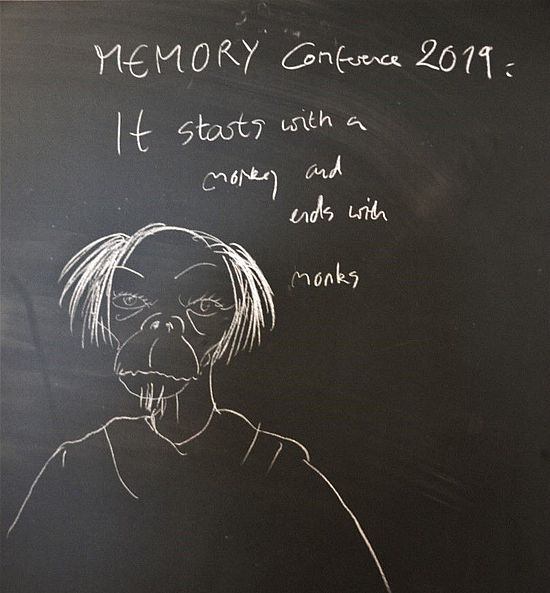 MEMORY Conference 2019:
It starts with a
monkey and
ends with
monks